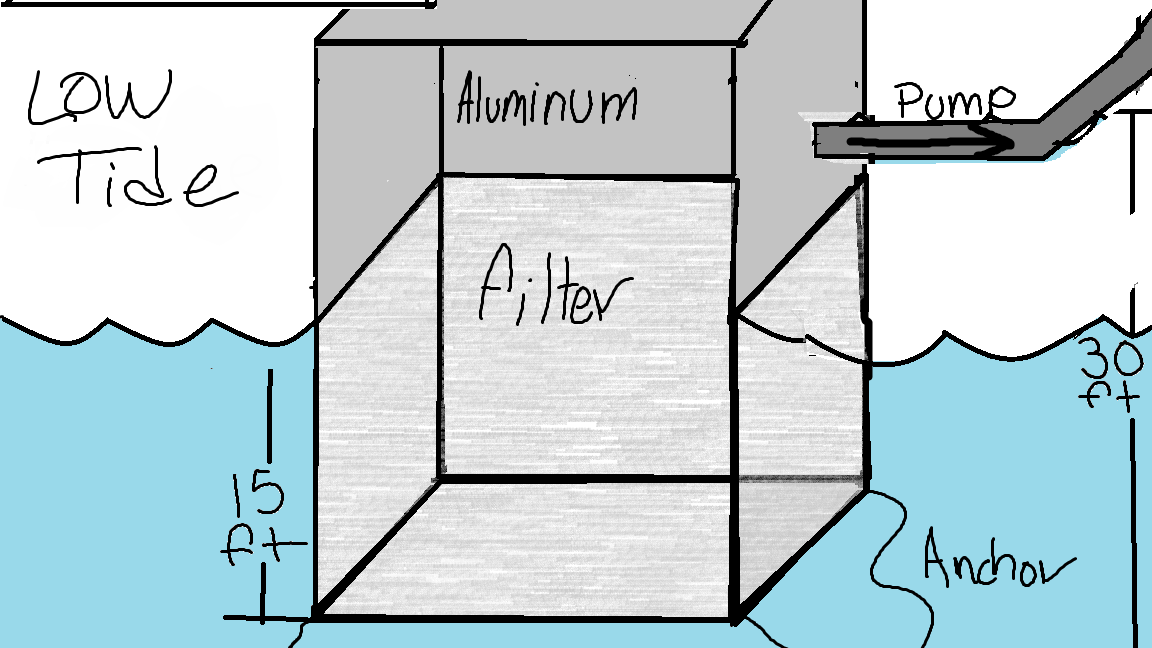 LOW
Tide
Aluminum
Pump
filter
30
ft
15
ft
Anchor